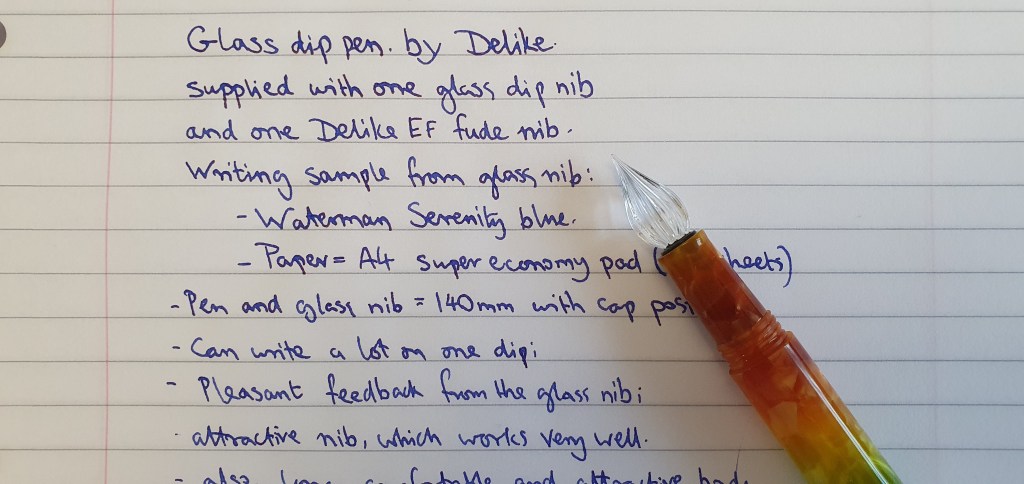 Glass dip pen. by Delike.
supplied with one glass dip nib
and one Delike EF fude nib.
Writing sample from glass nib:
- Waterman Serenity blue.
- Paper = A4 super economy pad ( heets)
- Pen and glass nib = 140mm with cap posi
- Can write a lot on one dip;
- Pleasant feedback from the glass nib;
· attractive nib, which works very well.
- also and attractive